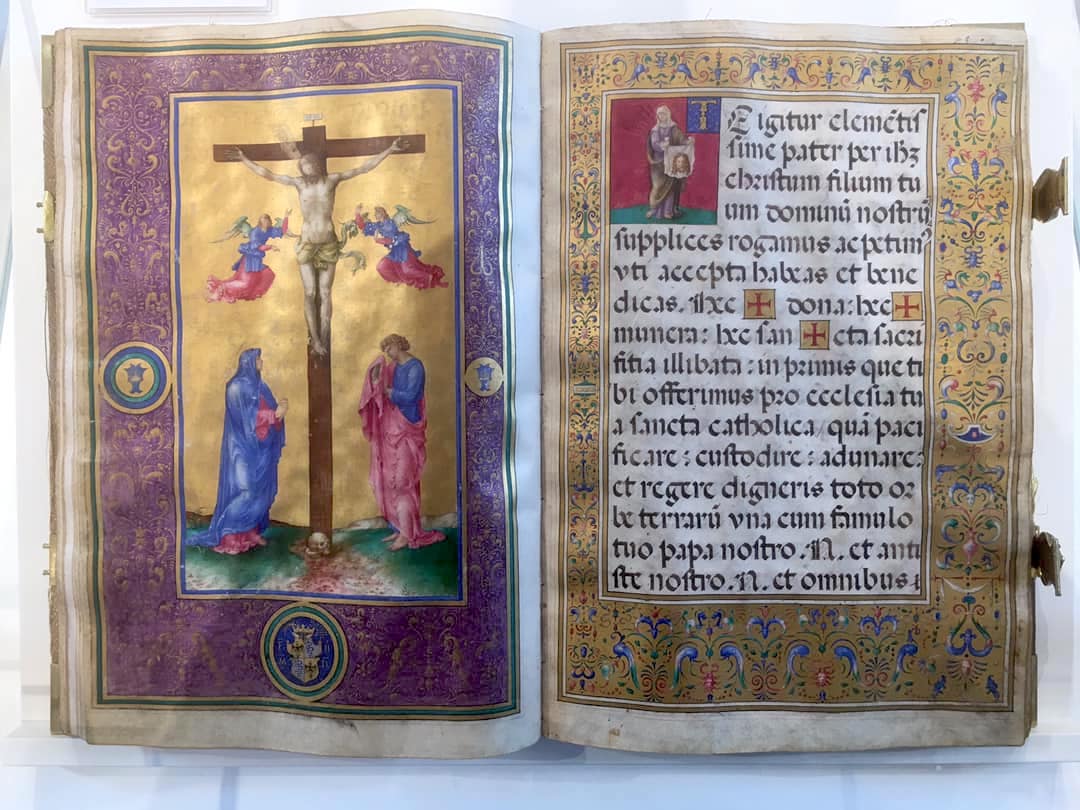 TE igitur clemẽtis
sime pater per ihʒ
christum filium tu
um dominũ nostrũ
supplices rogamus ac petimꝰ
vti accepta habeas et bene
dicas. hec ✠ dona: hec ✠
munera: hec san ✠ cta sacri
fitia illibata: in primis que ti
bi offerimus pro ecclesia tu
a sancta catholica quã paci
ficare: custodire: adunare:
et regere digneris toto or
be terrarũ vna cum famulo
tuo papa nostro .N. et anti
ste nostro .N. et omnibus